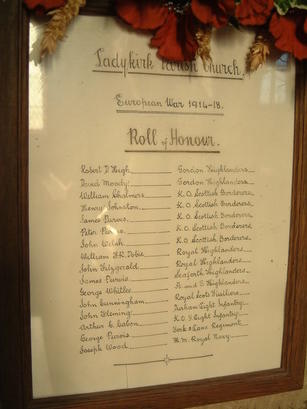 Ladykirk Parish Church.
European War 1914-18.
Roll of Honour.
Robert D. Gordon Highlanders
David Moody Gordon Highlanders
William Chalmers K.O. Scottish Borderers
Henry Johnston K.O. Scottish Borderers
James Purves K.O. Scottish Borderers
Peter K.O. Scottish Borderers
John Welsh K.O. Scottish Borderers
William H.R. Dobie Royal Highlanders
John Fitzgerald Royal Highlanders
James Purvis Seaforth Highlanders
George Whitlie A. and S. Highlanders
John Cunningham Royal Scots Fusiliers
John Fleming Durham Light Infantry
Arthur E. K.O.S. Light Infantry
George Purvis York & Lanc Regiment
Joseph Wood H.M. Royal Navy